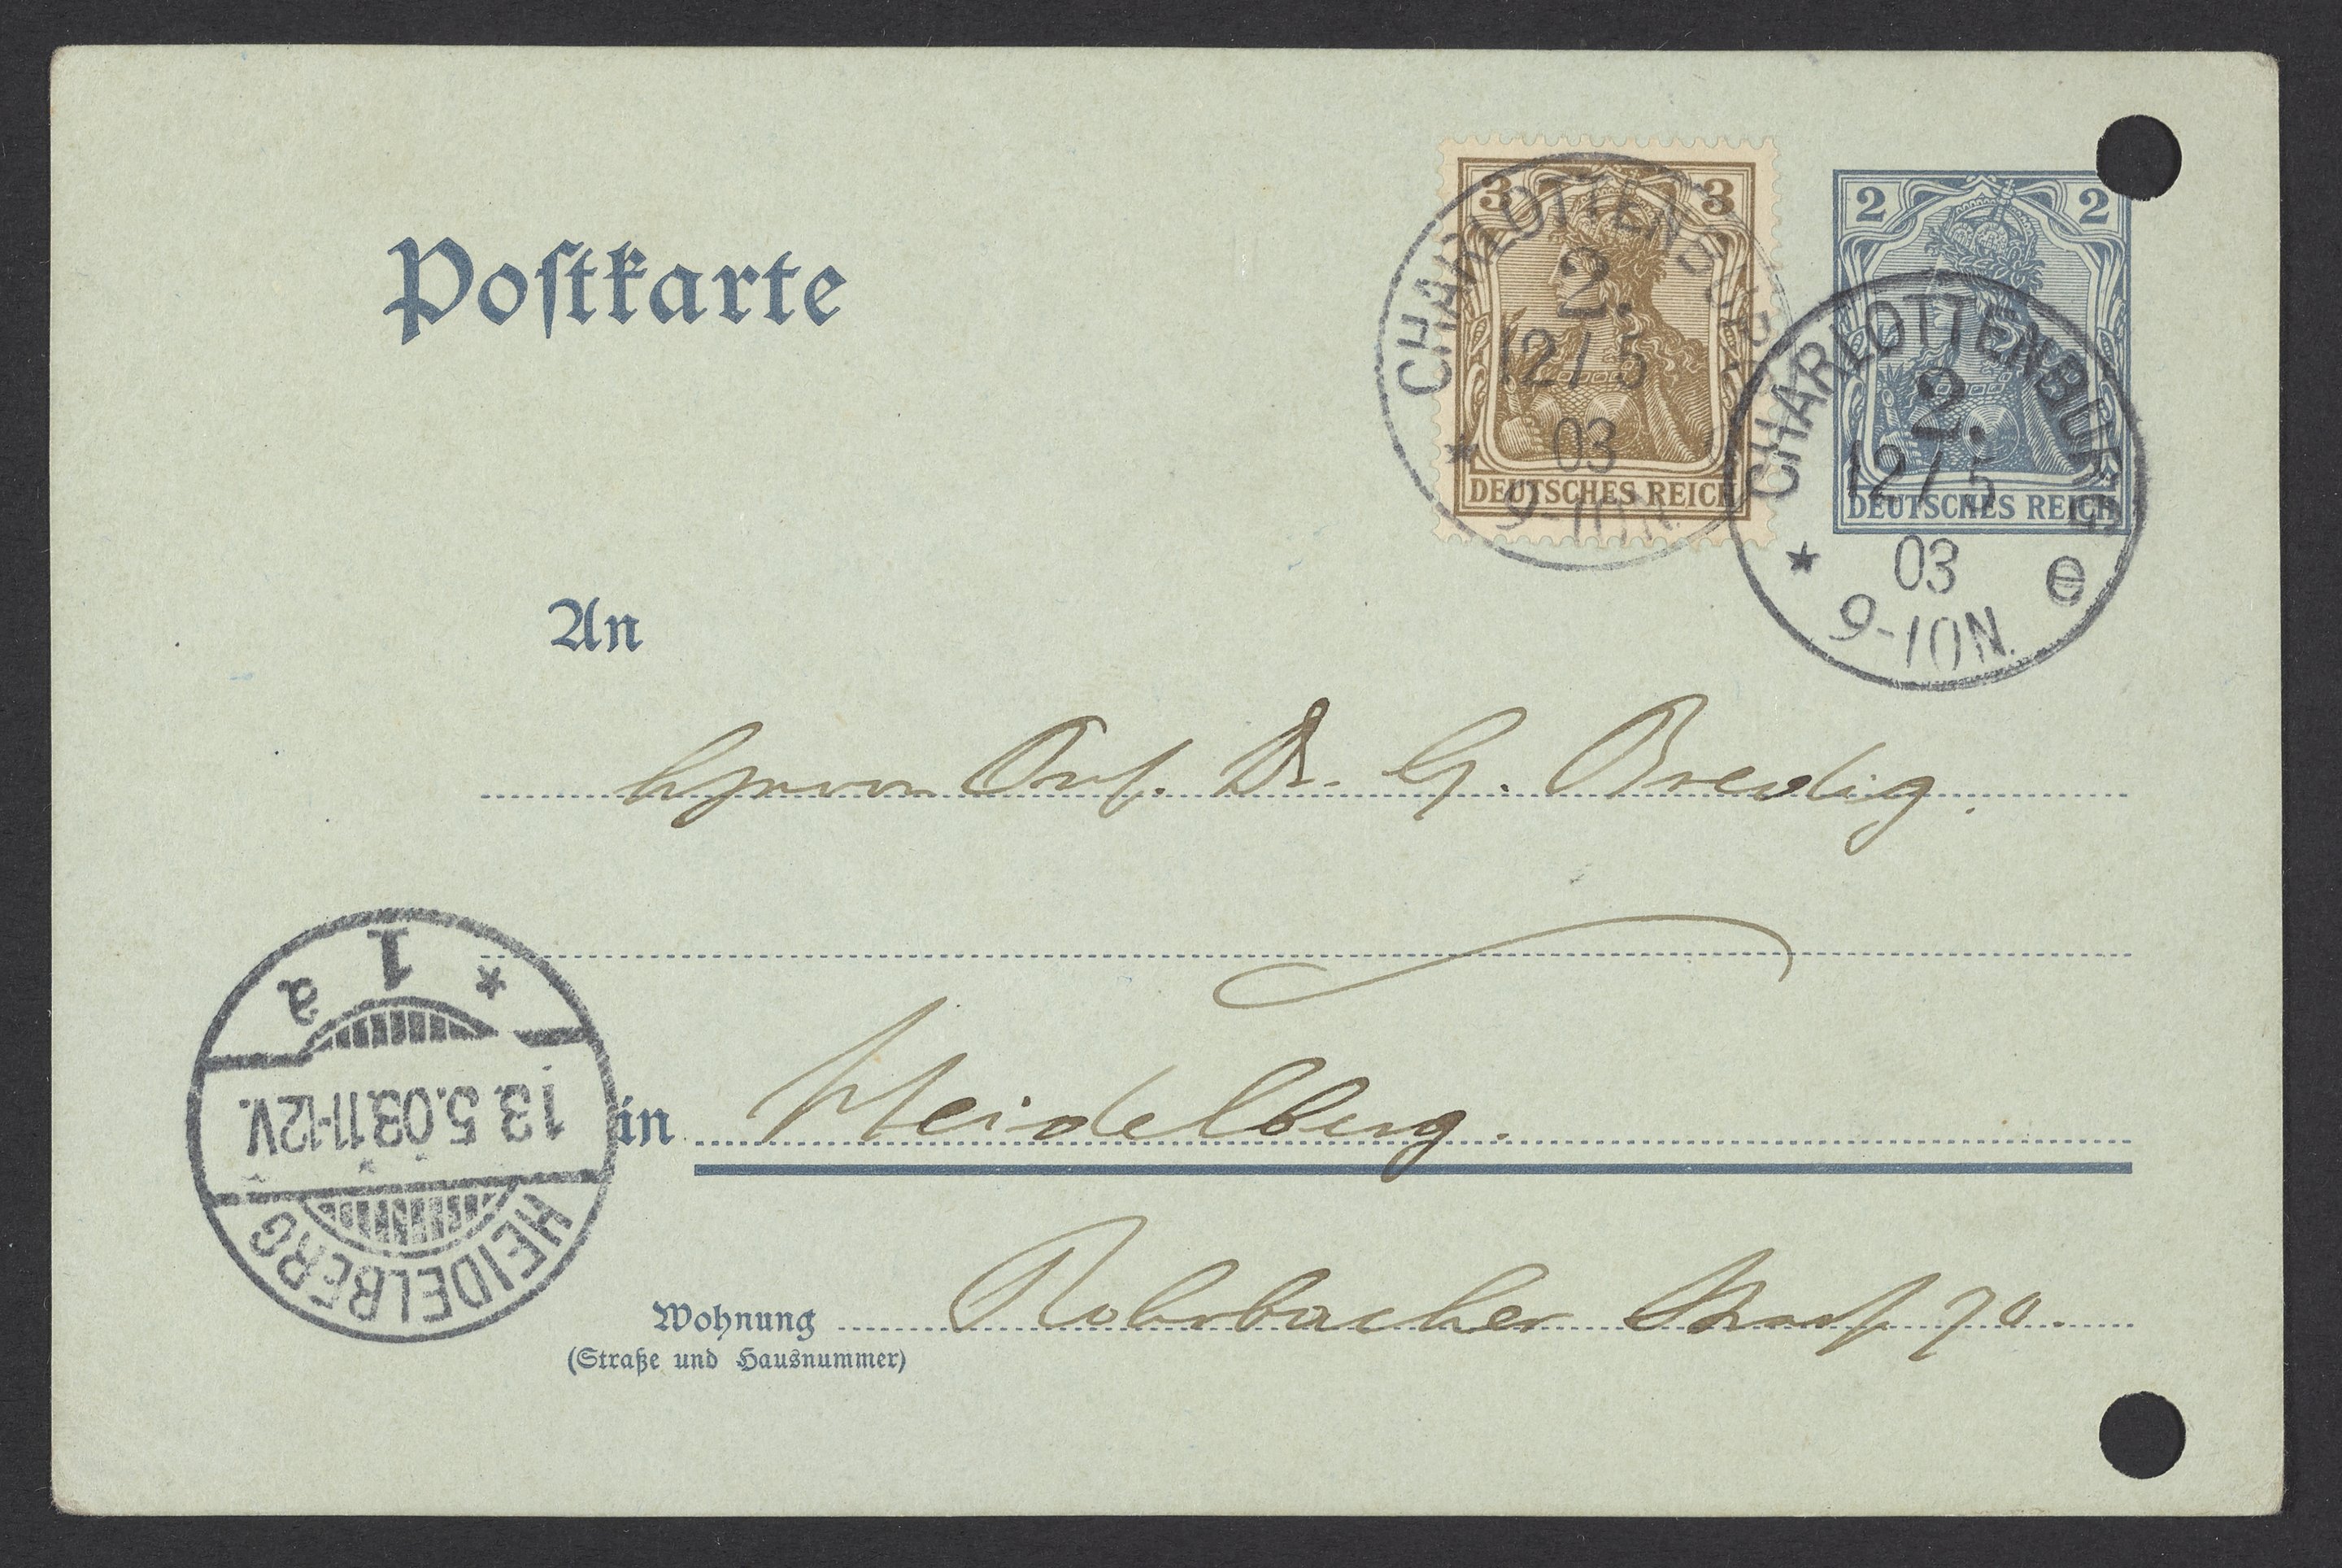 Postkarte
3 3
DEUTSCHES REICH
2 2
DEUTSCHES REICH
CHARLOTTENBURG
2.
12/5
03
9-10N.
CHARLOTTENBURG
2.
12/5
03
9-10N.
* e
An
Herrn Prof. Dr. G. Bredig.
in Heidelberg.
Wohnung Rohrbacher Straß 70.
(Straße und Hausnummer)
HEIDELBERG
13.5.03.11-12V.
* 1 a